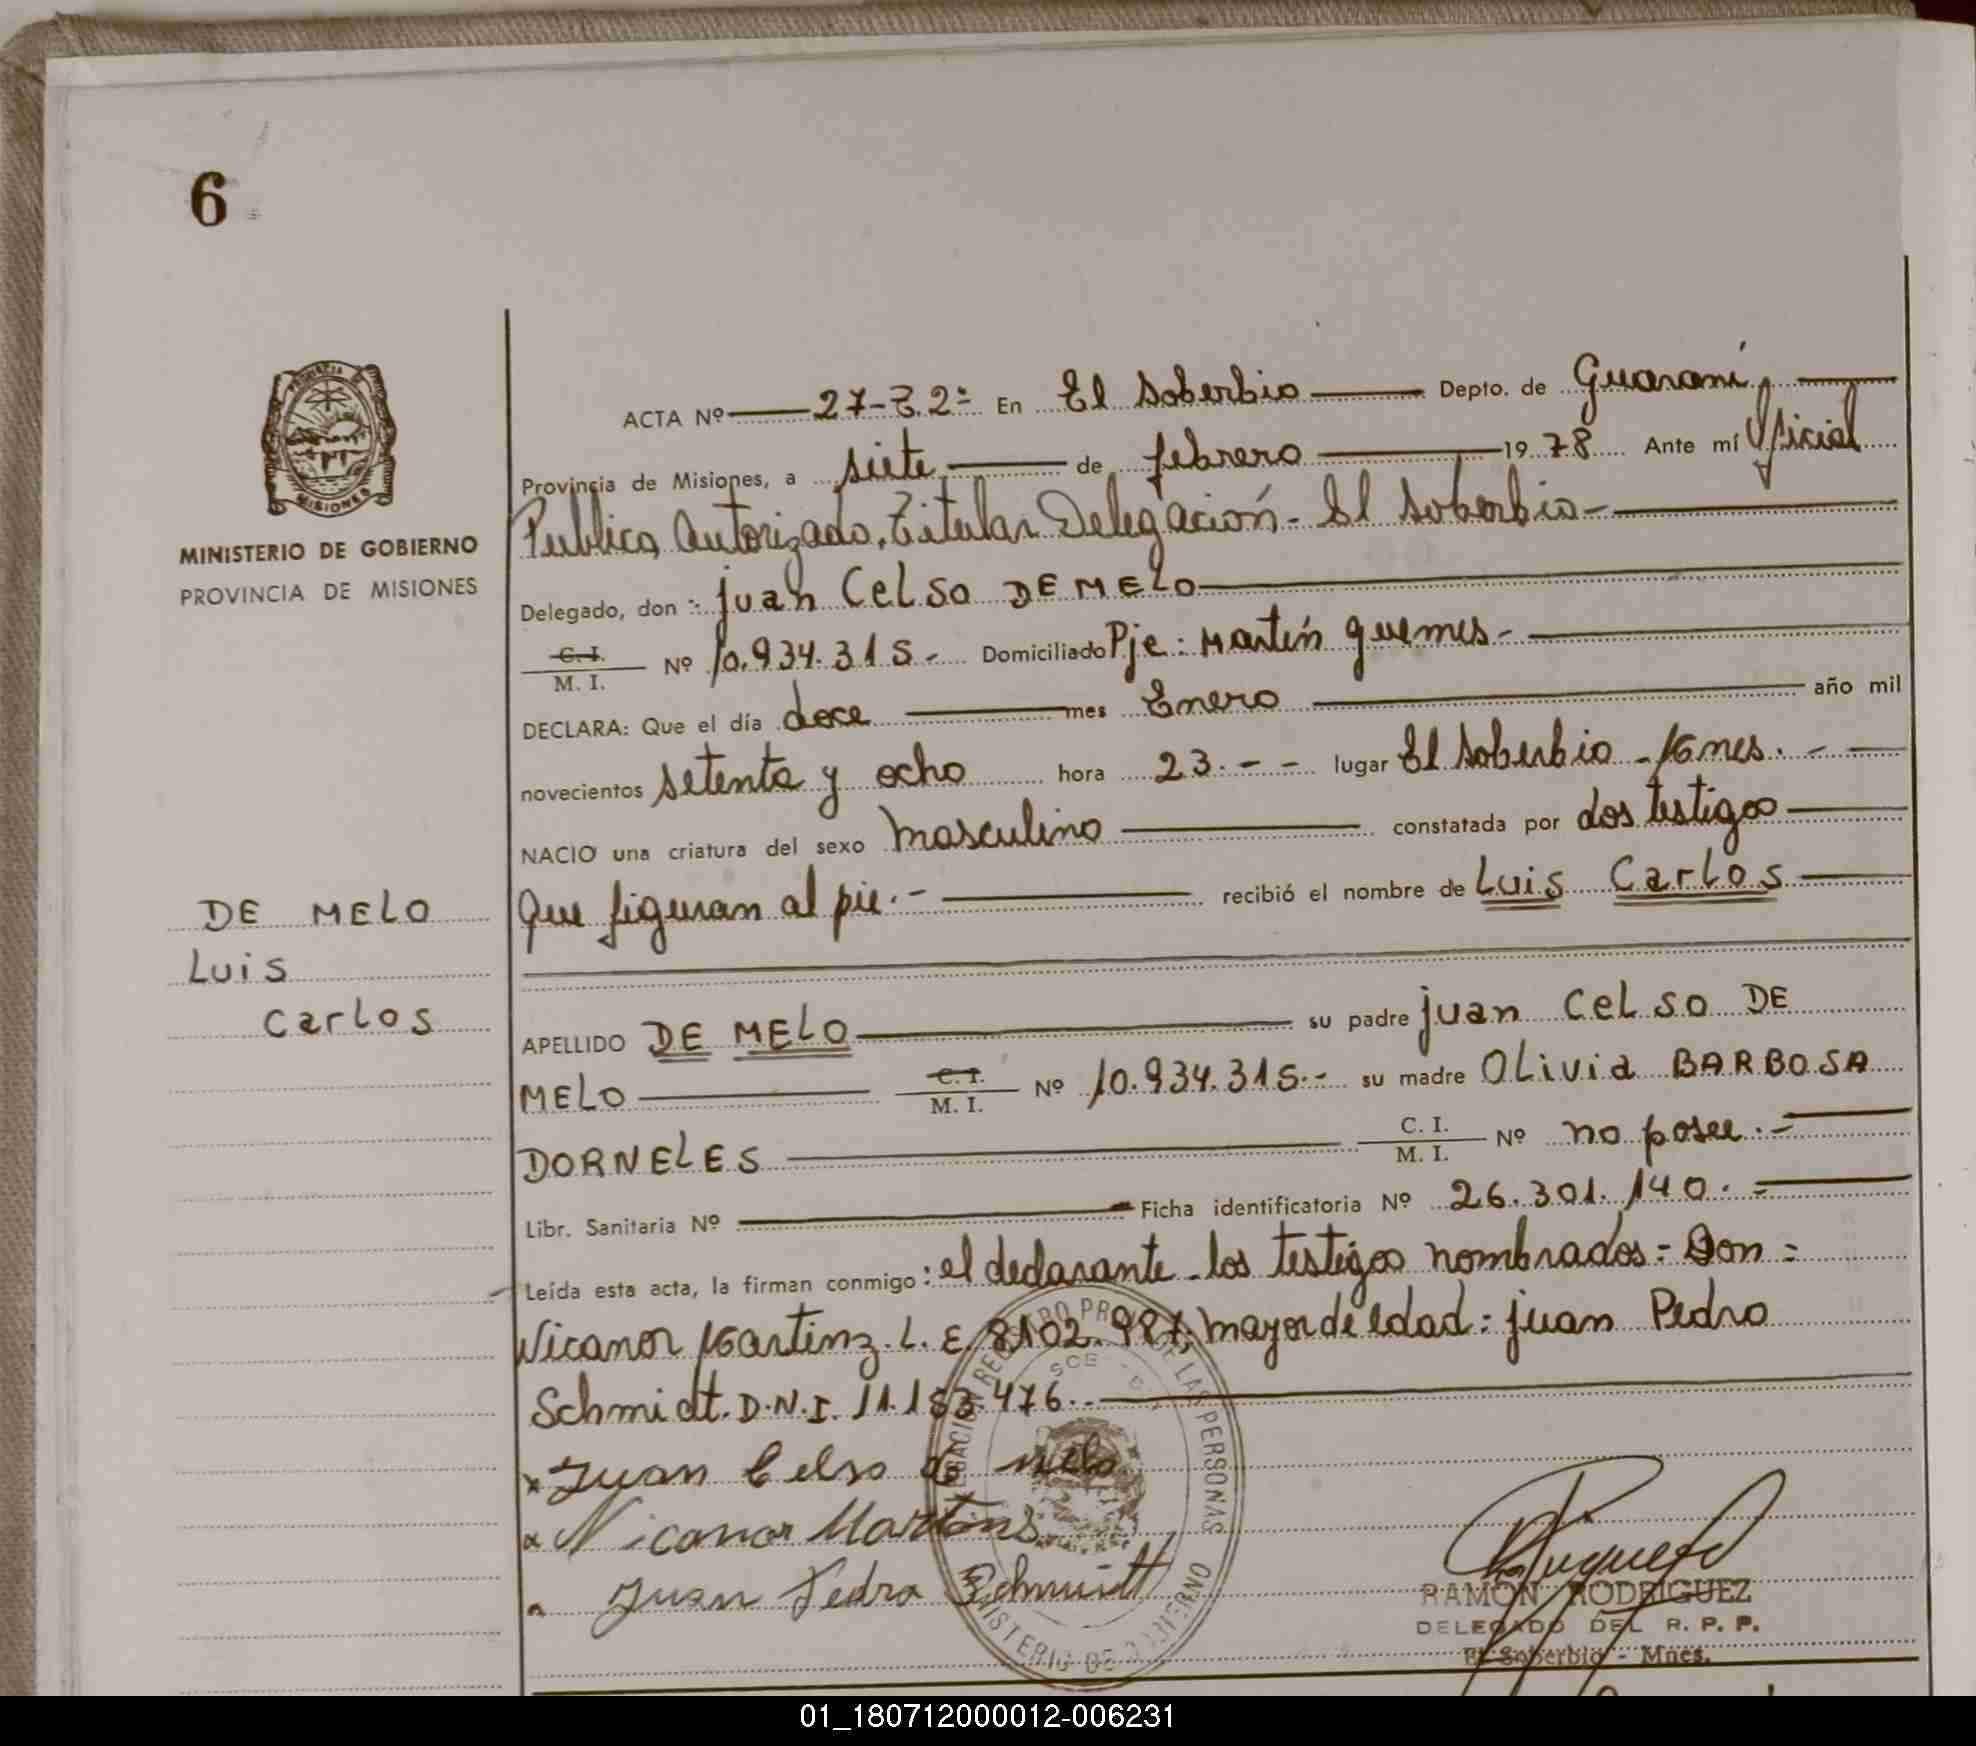 6
PROVINCIA DE
MISIONES
MINISTERIO DE GOBIERNO
PROVINCIA DE MISIONES
DE MELO
Luis
Carlos
ACTA Nº 27-T.2º En El Soberbio Depto. de Guaraní,
Provincia de Misiones, a siete de febrero 1978 Ante mí Oficial
Publico Autorizado, Titular Delegación - El Soberbio -
Delegado, don : Juan Celso DE MELO
C. I.
M. I. Nº 10.934.315.- Domiciliado Pje: Martín Guemes -
DECLARA: Que el día doce mes Enero año mil
novecientos setenta y ocho hora 23.- - lugar El Soberbio - Mnes. -
NACIO una criatura del sexo masculino constatada por dos testigos
que figuran al pie.- recibió el nombre de Luis Carlos
APELLIDO DE MELO su padre Juan Celso DE
MELO C. I.
M. I. Nº 10.934.315.- su madre Olivia BARBOSA
DORNELES C. I.
M. I. Nº no posee.-
Libr. Sanitaria Nº Ficha identificatoria Nº 26.301.140.-
Leída esta acta, la firman conmigo: el declarante - los testigos nombrados = Don =
Nicanor Martinz. L. E. 8102.987, mayor de edad: Juan Pedro
Schmidt. D.N.I. 11.153.476.-
x Juan Celso de melo
x Nicanor Martins
Juan Pedro Schmidt
DE LAS PERSONAS
MINISTERIO DE GOBIERNO
RAMON RODRIGUEZ
DELEGADO DEL R. P. P.
El Soberbio - Mnes.
01_180712000012-006231